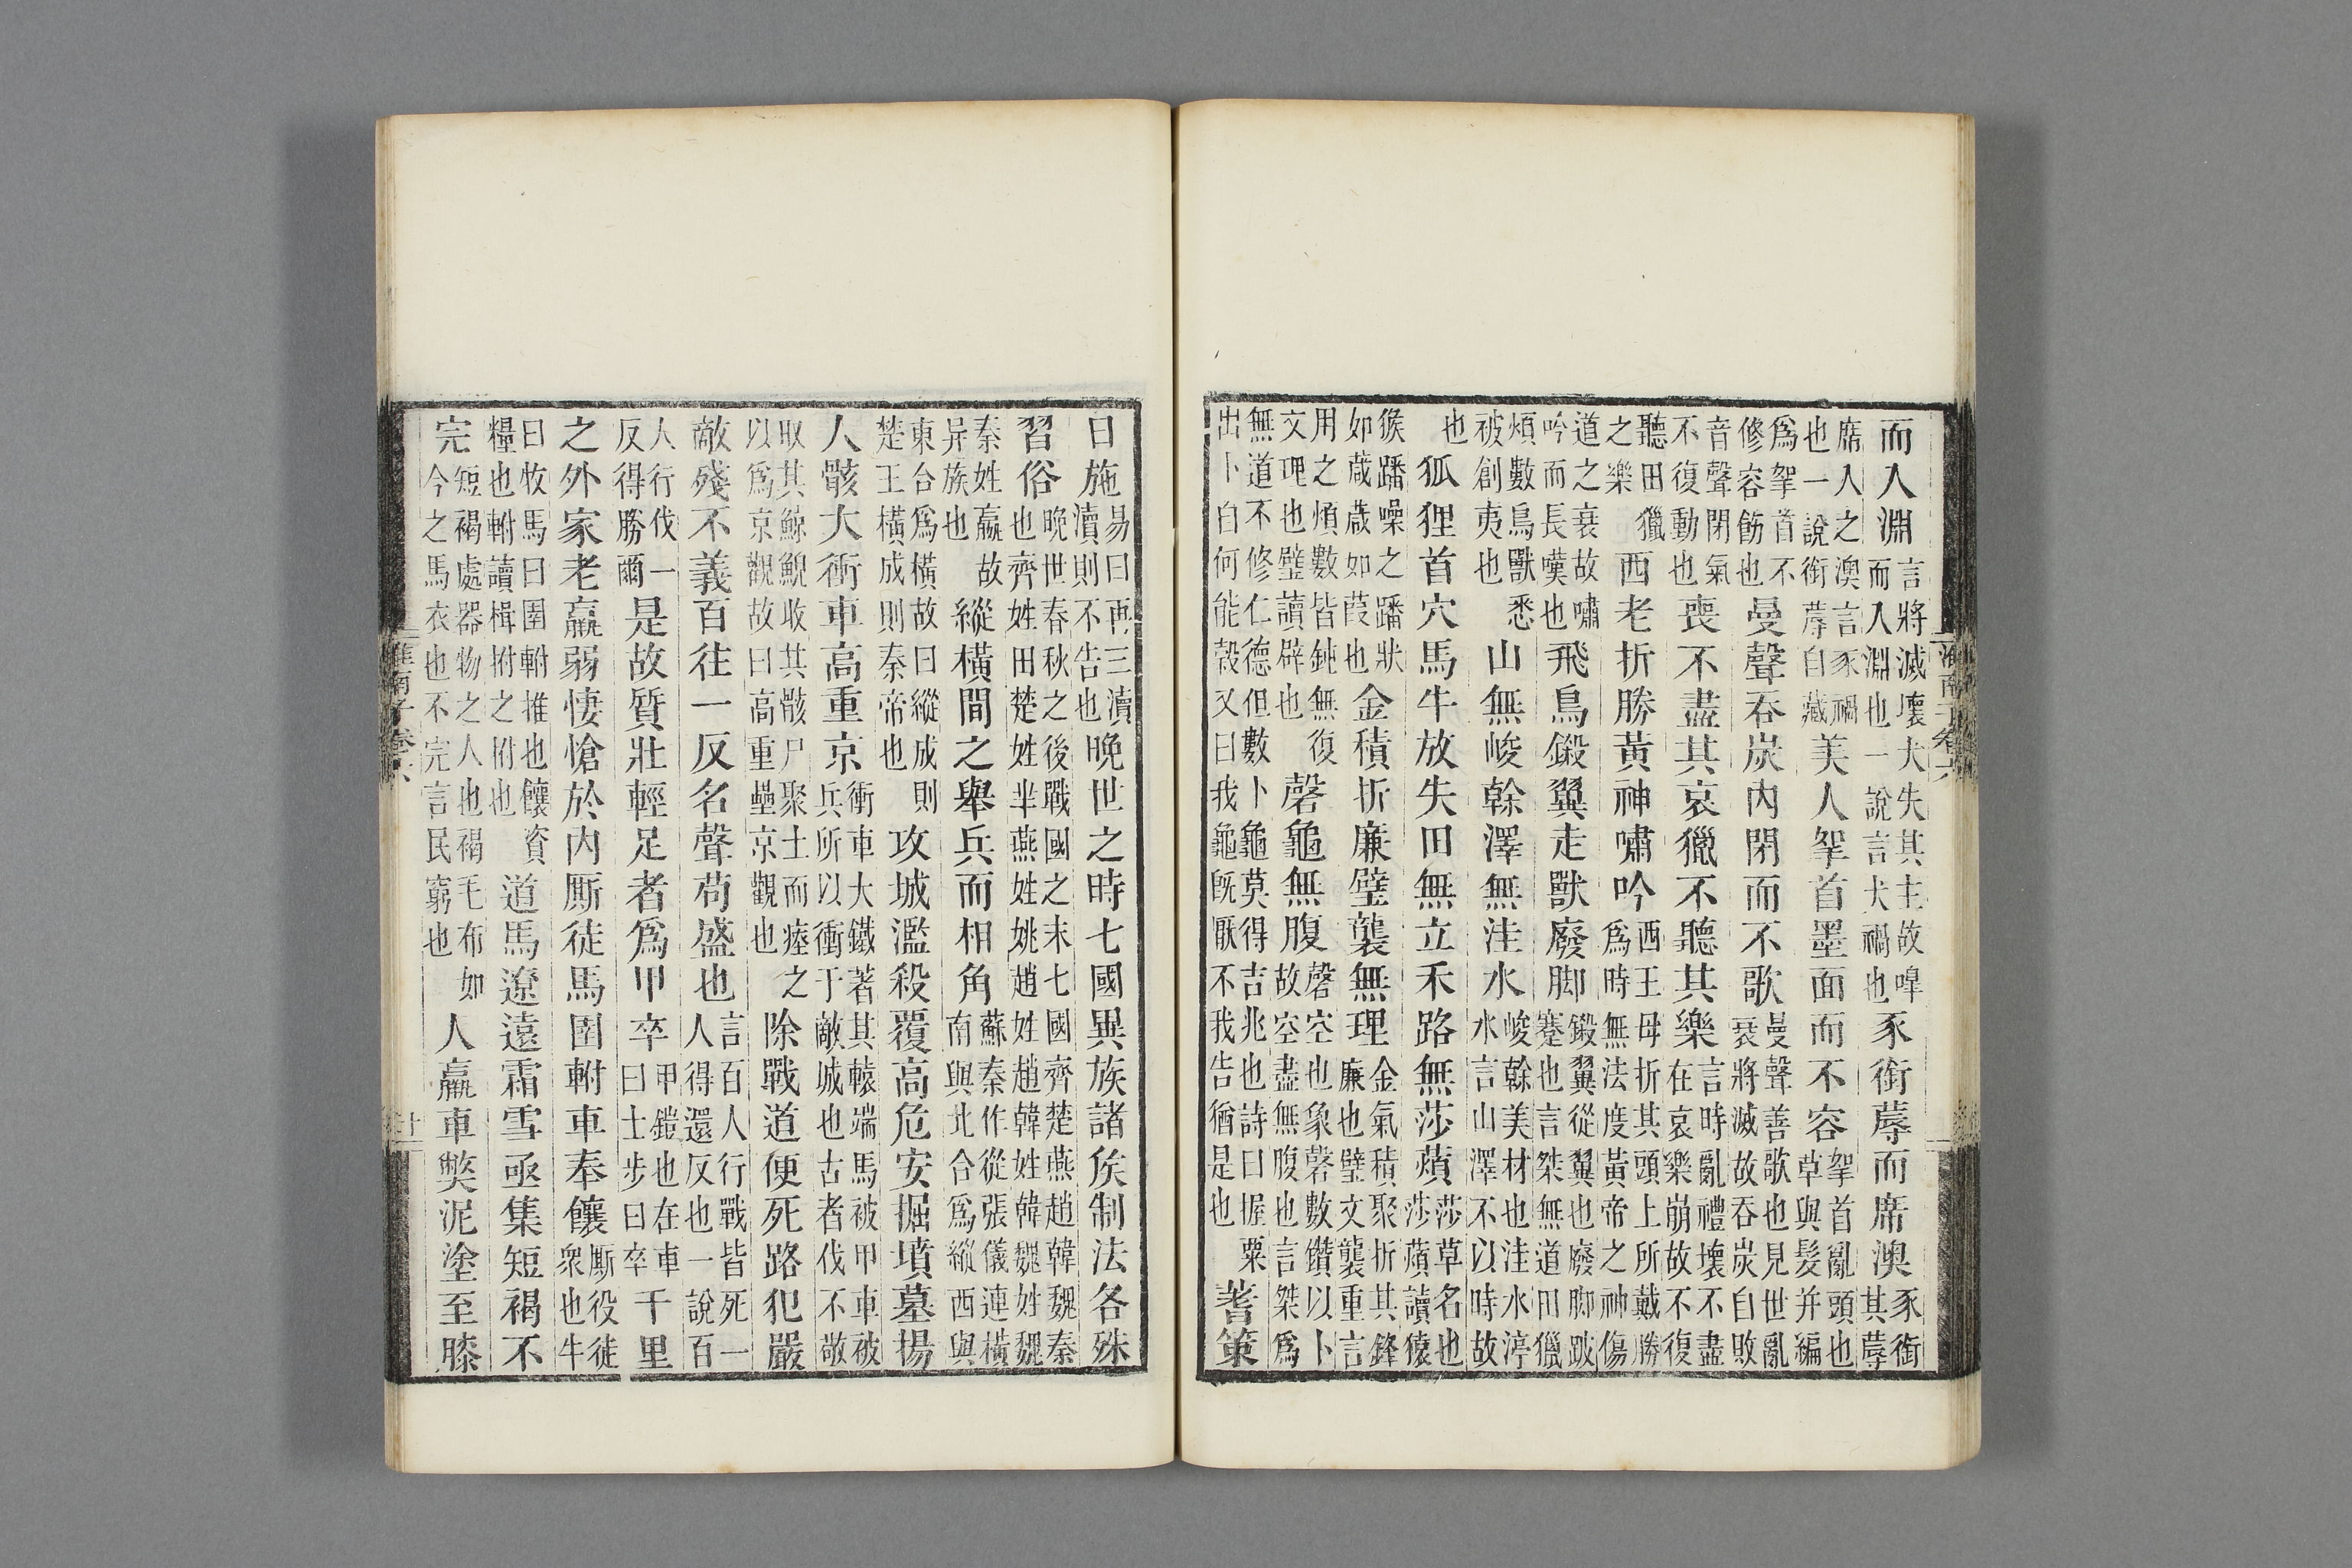 而入淵言將滅壞犬失其主故嘷而入淵也一說言犬禍也豕銜蓐而席澳豕銜其蓐
席入人之澳言豕禍也一說銜蓐自藏美人挐首墨面而不容挐首亂頭也草與髮并編
爲挐首不修容飭也曼聲吞炭內閉而不歌曼聲善歌也見世亂衰將滅故吞炭自敗
音聲閉氣不復動也喪不盡其哀獵不聽其樂言時亂禮壞不盡在哀樂崩故不復
聽田獵之樂西老折勝黃神嘯吟西王母折其頭上所戴勝爲時無法度黃帝之神傷
道之衰故嘯吟而長嘆也飛鳥鎩翼走獸廢脚鎩翼從翼也廢脚跛蹇也言桀無道田獵
煩數鳥獸悉被創夷也山無峻榦澤無洼水峻榦美材也洼水渟水言山澤不以時故
也狐狸首穴馬牛放失田無立禾路無莎薠莎草名也莎薠讀猿
猴蹯噪之蹯狀如葴葴如葭也金積折廉璧襲無理金氣積聚折其鋒廉也璧文襲重言
用之煩數皆鈍無復文理也璧讀辟也磬龜無腹磬空也象磬數鑽以卜故空盡無腹也言桀爲
無道不修仁德但數卜龜莫得吉兆也詩曰握粟出卜自何能彀又曰我龜旣厭不我告猶是也蓍策
日施易曰再三瀆瀆則不告也晚世之時七國異族諸矦制法各殊
習俗晚世春秋之後戰國之末七國齊楚燕趙韓魏秦也齊姓田楚姓芈燕姓姚趙姓趙韓姓韓魏姓魏
秦姓嬴故异族也縱橫間之舉兵而相角蘇秦作從張儀連橫南與北合爲縱西與
東台爲橫故曰縱成則楚王橫成則秦帝也攻城濫殺覆高危安掘墳墓揚
人骸大衝車高重京衝車大鐵著其轅端馬被甲車被兵所以衝于敵城也古者伐不敬
取其鯨鯢收其骸尸聚土而瘞之以爲京觀故曰高重壘京觀也除戰道便死路犯嚴
敵殘不義百往一反名聲苟盛也言百人行戰皆死一人得還反也一說百
人行伐一反得勝爾是故質壯輕足者爲甲卒甲鎧也在車曰士步曰卒千里
之外家老羸弱悽愴於內厮徒馬圉軵車奉饟厮役徒衆也牛
曰牧馬曰圉軵推也饟資糧也軵讀楫拊之拊也道馬遼遠霜雪亟集短褐不
完短褐處器物之人也褐毛布如今之馬衣也不完言民窮也人羸車獘泥塗至膝
淮南子卷六
淮南子卷六
十